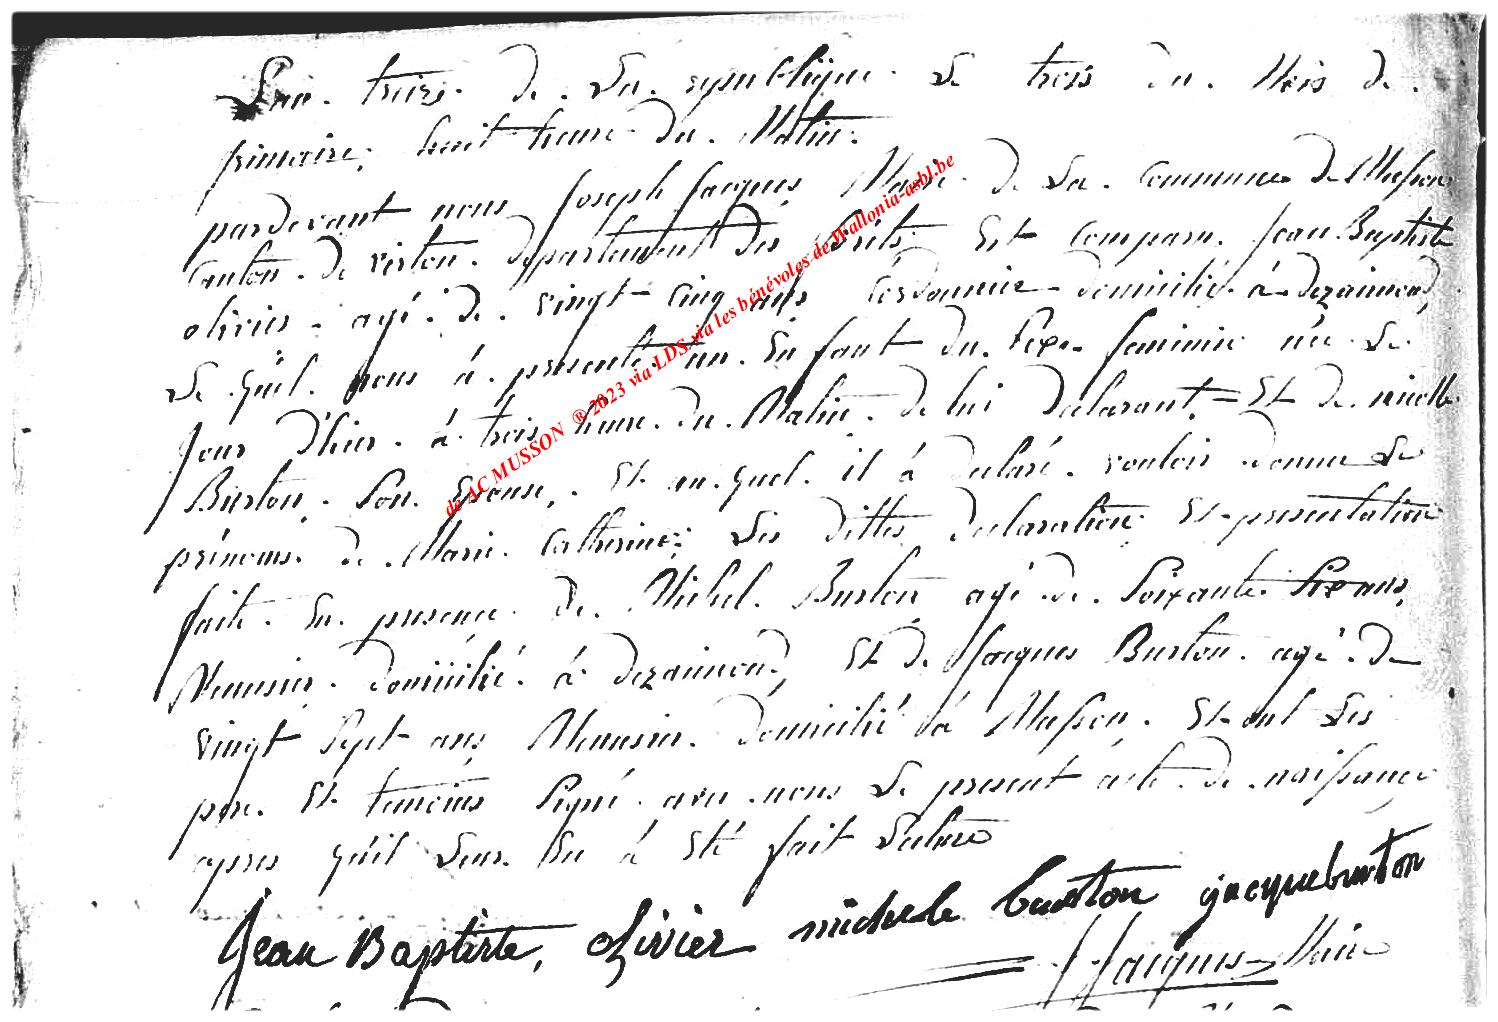 L'an treize de La republique Le trois du Mois de
frimaire, huit heure du Matin.
pardevant nous Joseph Jacques Maire de La Commune de Musson
Canton de virton departement des forêts Est Comparu Jean Baptiste
olivier agé de vingt Cinq ans Cordonnier domicilié à dezaimond,
Le quil nous á presenté un Enfant du sexe feminin née Le
Jour D'hier á trois heure du Matin de lui declarant Et de
Burton Son Epouse, Et au quel il á declaré vouloir donner Le
prénoms de Marie Catherine; Les dittes declaration Et presentation
faite En presence de Michel Burton agé de Soixante Six ans,
Meunier domicilié á dezaimond, Et de Jacques Burton agé de
vingt Sept ans Meunier domicilié á Musson, Et ont Les
pere Et temoins Signé avec nous Le present acte de naissance
apres quil Leur En á Eté fait Lecture
Jean Baptiste, olivier michele burton jacqueburton
J Jacques Maire
de AC MUSSON ® 2023 via LDS via les bénévoles de Wallonia-asbl.be